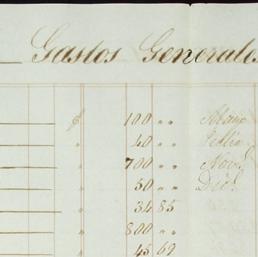 Gastos Generales
$ 100 " "
" 40 " "
" 700 " " Nov
" 50 " " Dic
" 34 85
" 800 " "
" 45 69